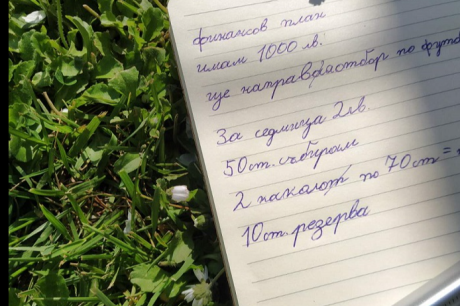 финансов план
имам 1000 лв.
ще направя отбор по футб
За седмица 2лв.
50ст. събирам
2 паколот по 70ст =
10ст. резерва